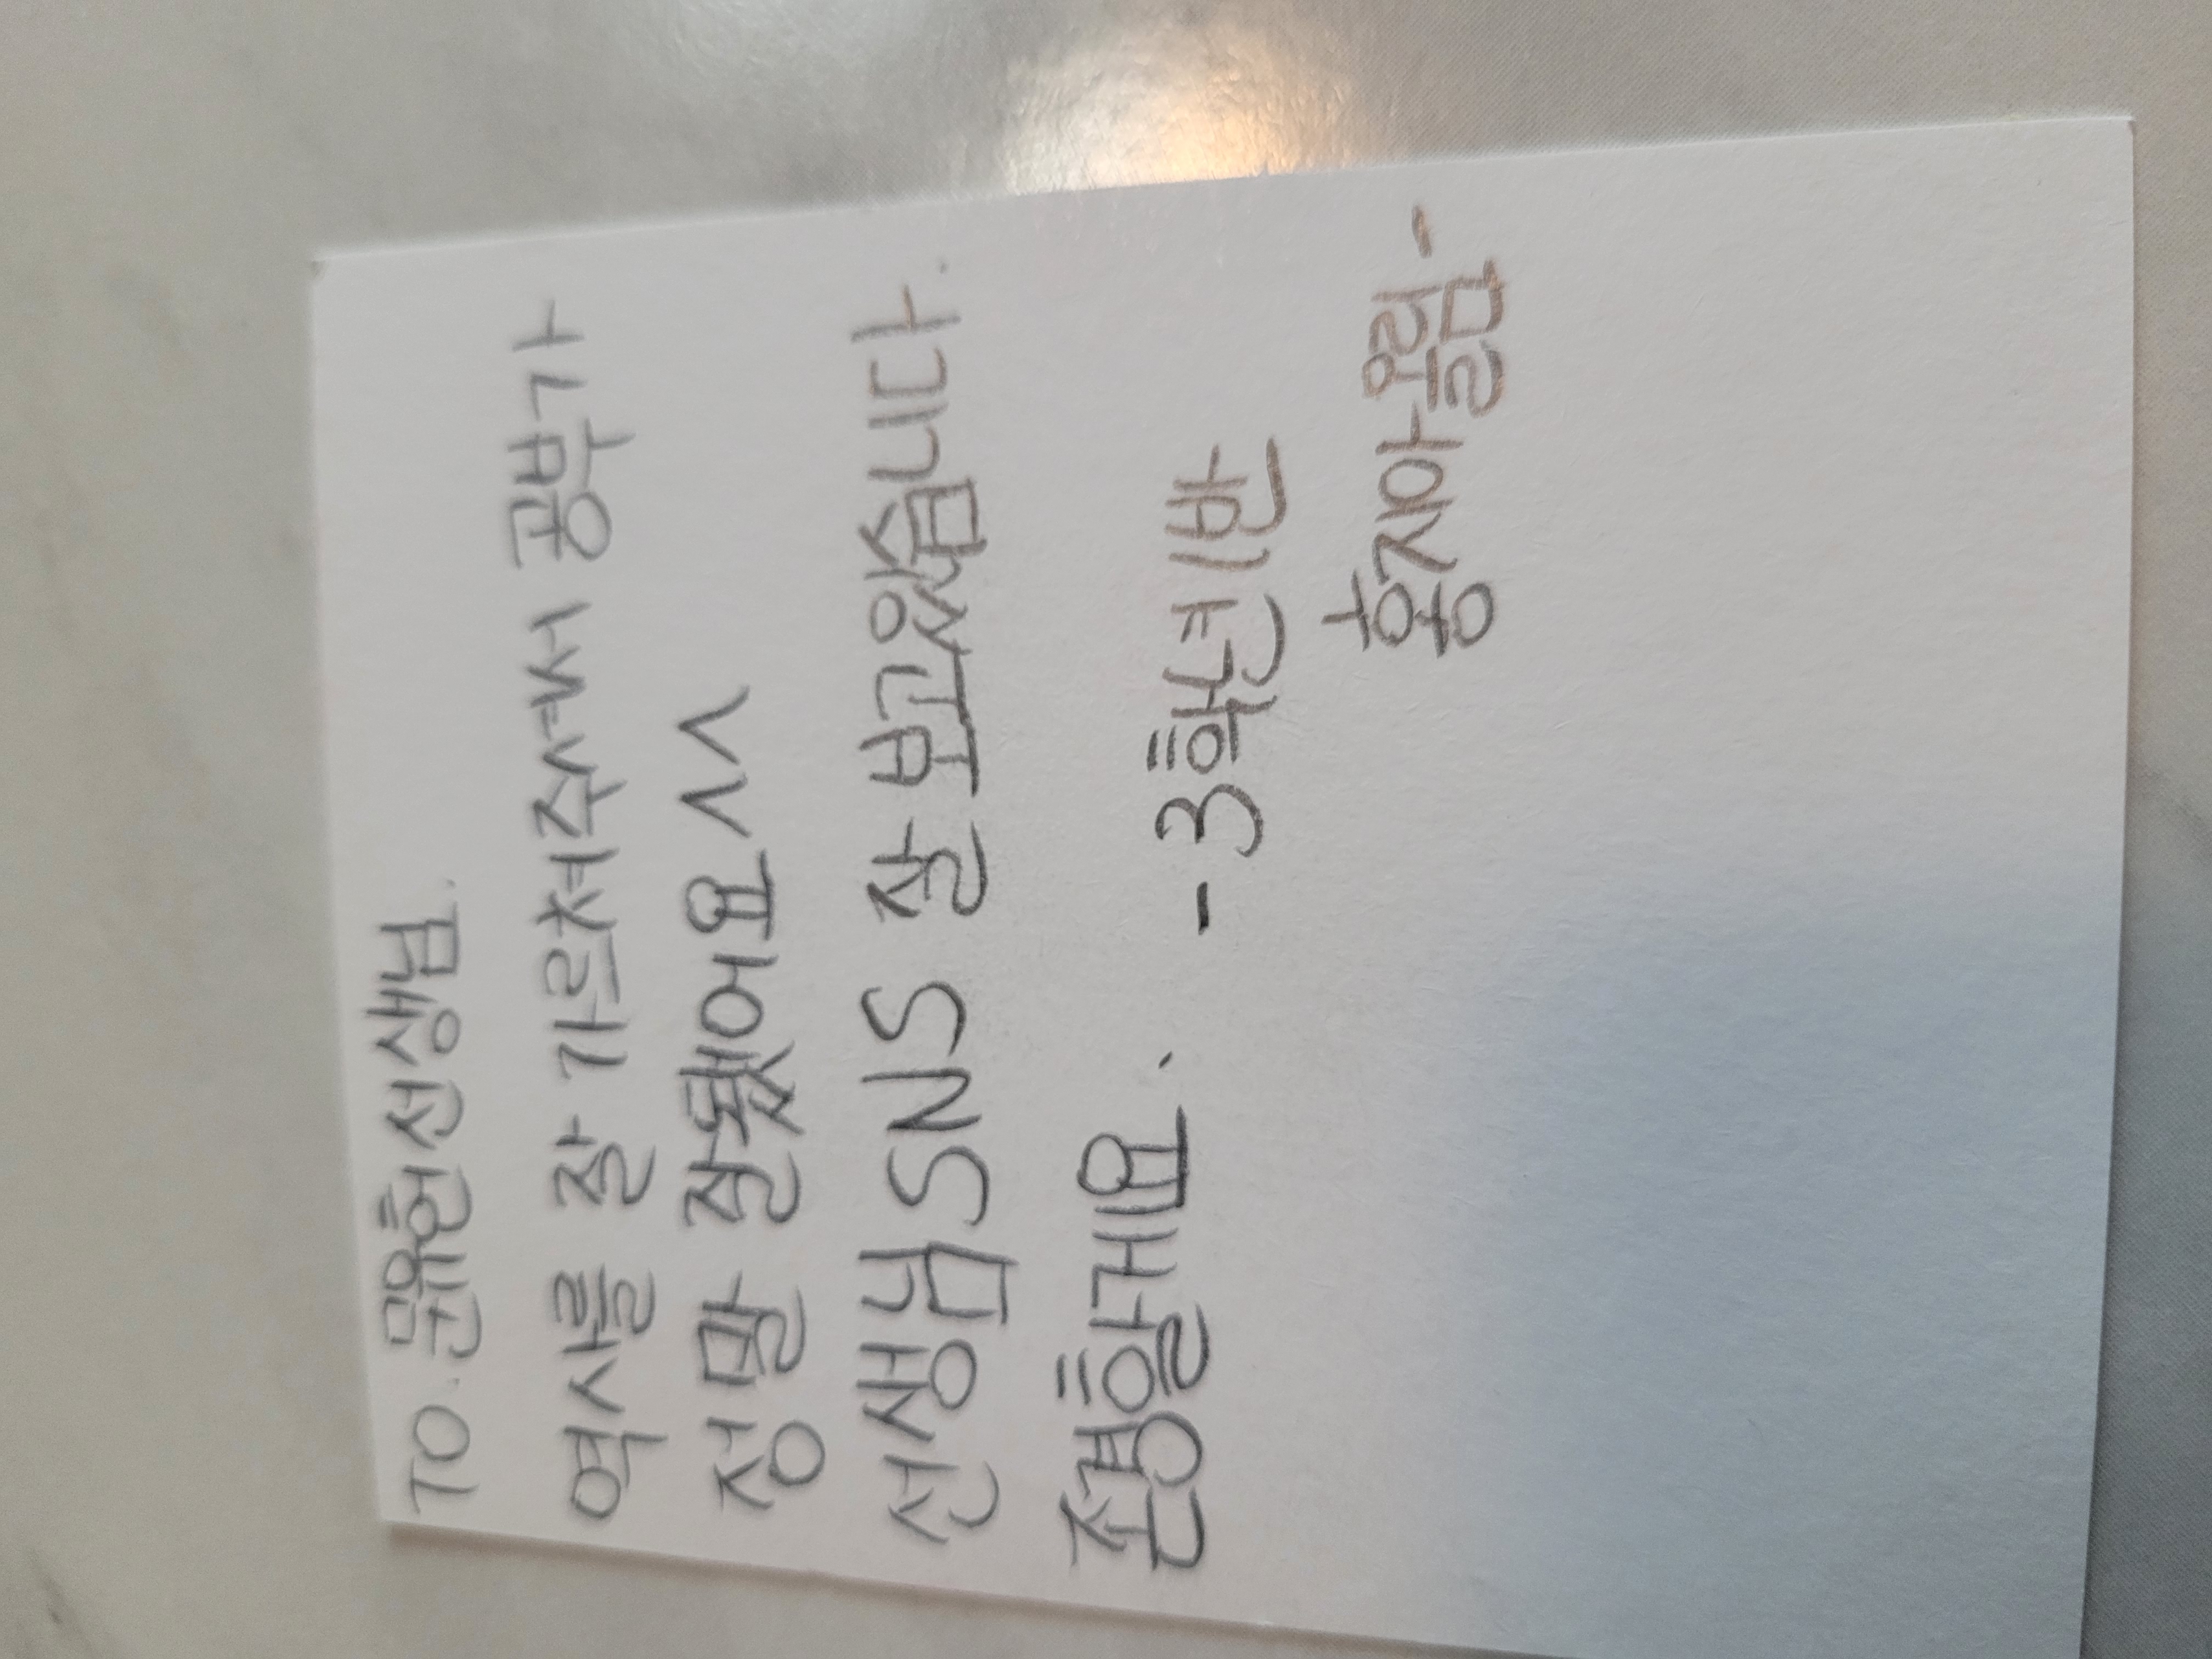 TO. 문유현선생님.
역사를 잘 가르쳐주셔서 공부가
정말 잘됐어요^^
선생님SNS 잘 보고있습니다.
존경할게요. -3학년1반
홍시아올림-